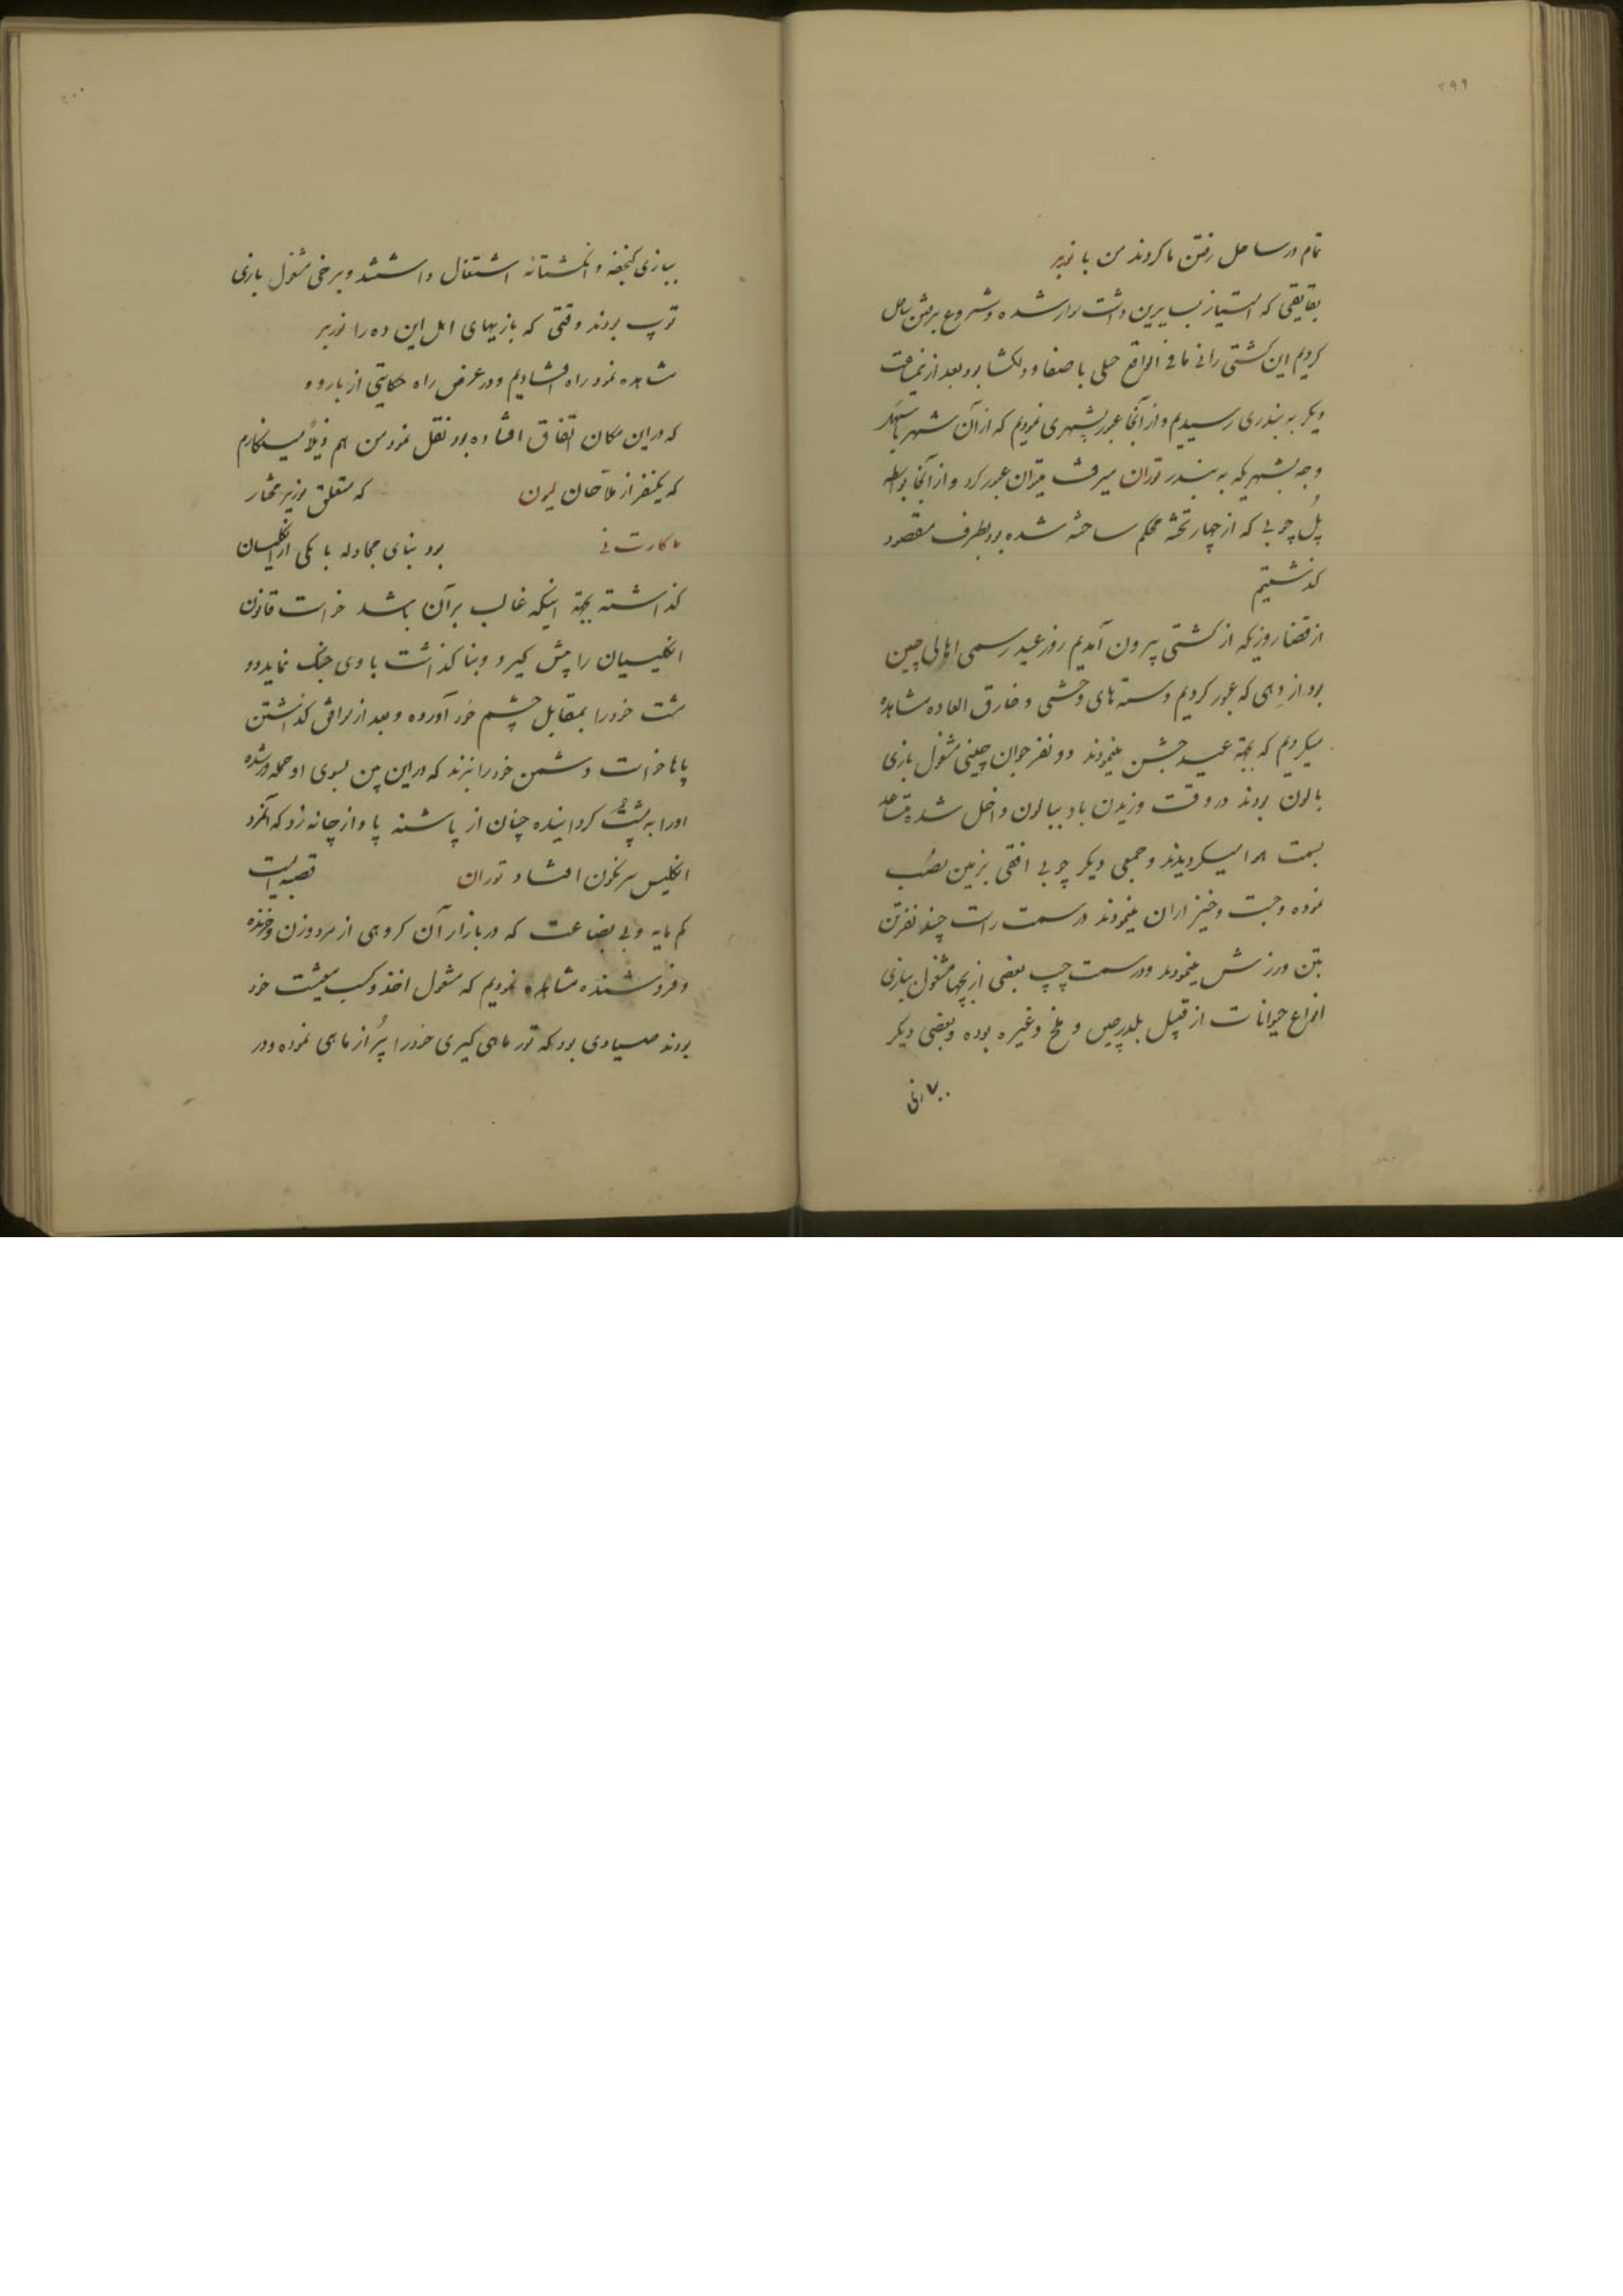 ۲۹۹
تمام در ساحل رفتن ما کردند من با نوربر
بقایقی که امتیاز بسایرین داشت سوار شده و شروع برفتن ساحل
کردیم این کشتی رانی ما فی الواقع خیلی با صفا و دلکشا بود بعد از نیمساعت
دیکر به بندری رسیدیم و از آنجا عبور بشهری نمودیم که از آن شهر باسهل
وجه بشهریکه به بندر توران میرفت میتوان عبور کرد و از آنجا بواسطه
پُل چوبی که از چهار تخته محکم ساخته شده بود بطرف مقصود
کذشتیم
از قضا روزیکه از کشتی بیرون آمدیم روز عید رسمی اهالی چین
بود از دِهی که عبور کردیم دسته های وحشی و خارق العاده مشاهده
میکردیم که بجهة عید جشن مینمودند دو نفر جوان چینی مشغول بازی
بالون بودند در وقت وزیدن باد ببالون داخل شده متصاعد
بسمت هوا میکردیدند و جمعی دیکر چوبی افقی بزمین نصب
نموده و جست و خیز از آن مینمودند در سمت راست چند نفر تن
بتن ورزش مینمودند و در سمت چپ بعضی از بچها مشغول ببازی
انواع حیوانات از قبیل بلدرچین و ملخ و غیره بوده و بعضی دیکر
ببازی
۳۰۰
ببازی کنجفه و انکشتانه اشتغال داشتند و برخی مشغول بازی
توپ بودند وقتی که بازیهای اهل این ده را نوربر
مشاهده نمود راه افتادیم و در عرض راه حکایتی از بارو و
که در این مکان اتفاق افتاده بود نقل نمود من هم ذیلاً مینکارم
که یکنفر از ملاحان لیون که متعلق بوزیر مختار
ماکارت نی بود بنای مجادله با یکی از انکلیسان
کذاشته بجهة اینکه غالب بر آن باشد خواست قانون
انکلیسیان را پیش کیرد و بنا کذاشت با وی جنک نماید دو
مشت خود را بمقابل چشم خود آورده و بعد از مراقی کذاشتن
پاها خواست دشمن خود را بزند که در این بین بسوی او حمله ور شده
او را به پشت کردانیده چنان از پاشنه پا و از چانه زد که آنمرد
انکلیس سرنکون افتاد توران قصبه ایست
کم مایه و بی بضاعت که در بازار آن کروهی از مرد و زن و خرنده
و فروشنده مشاهده نمودیم که مشغول اخذ و کسب معیشت خود
بودند صیادی بود که تور ماهی کیری خود را پُر از ماهی نموده و در